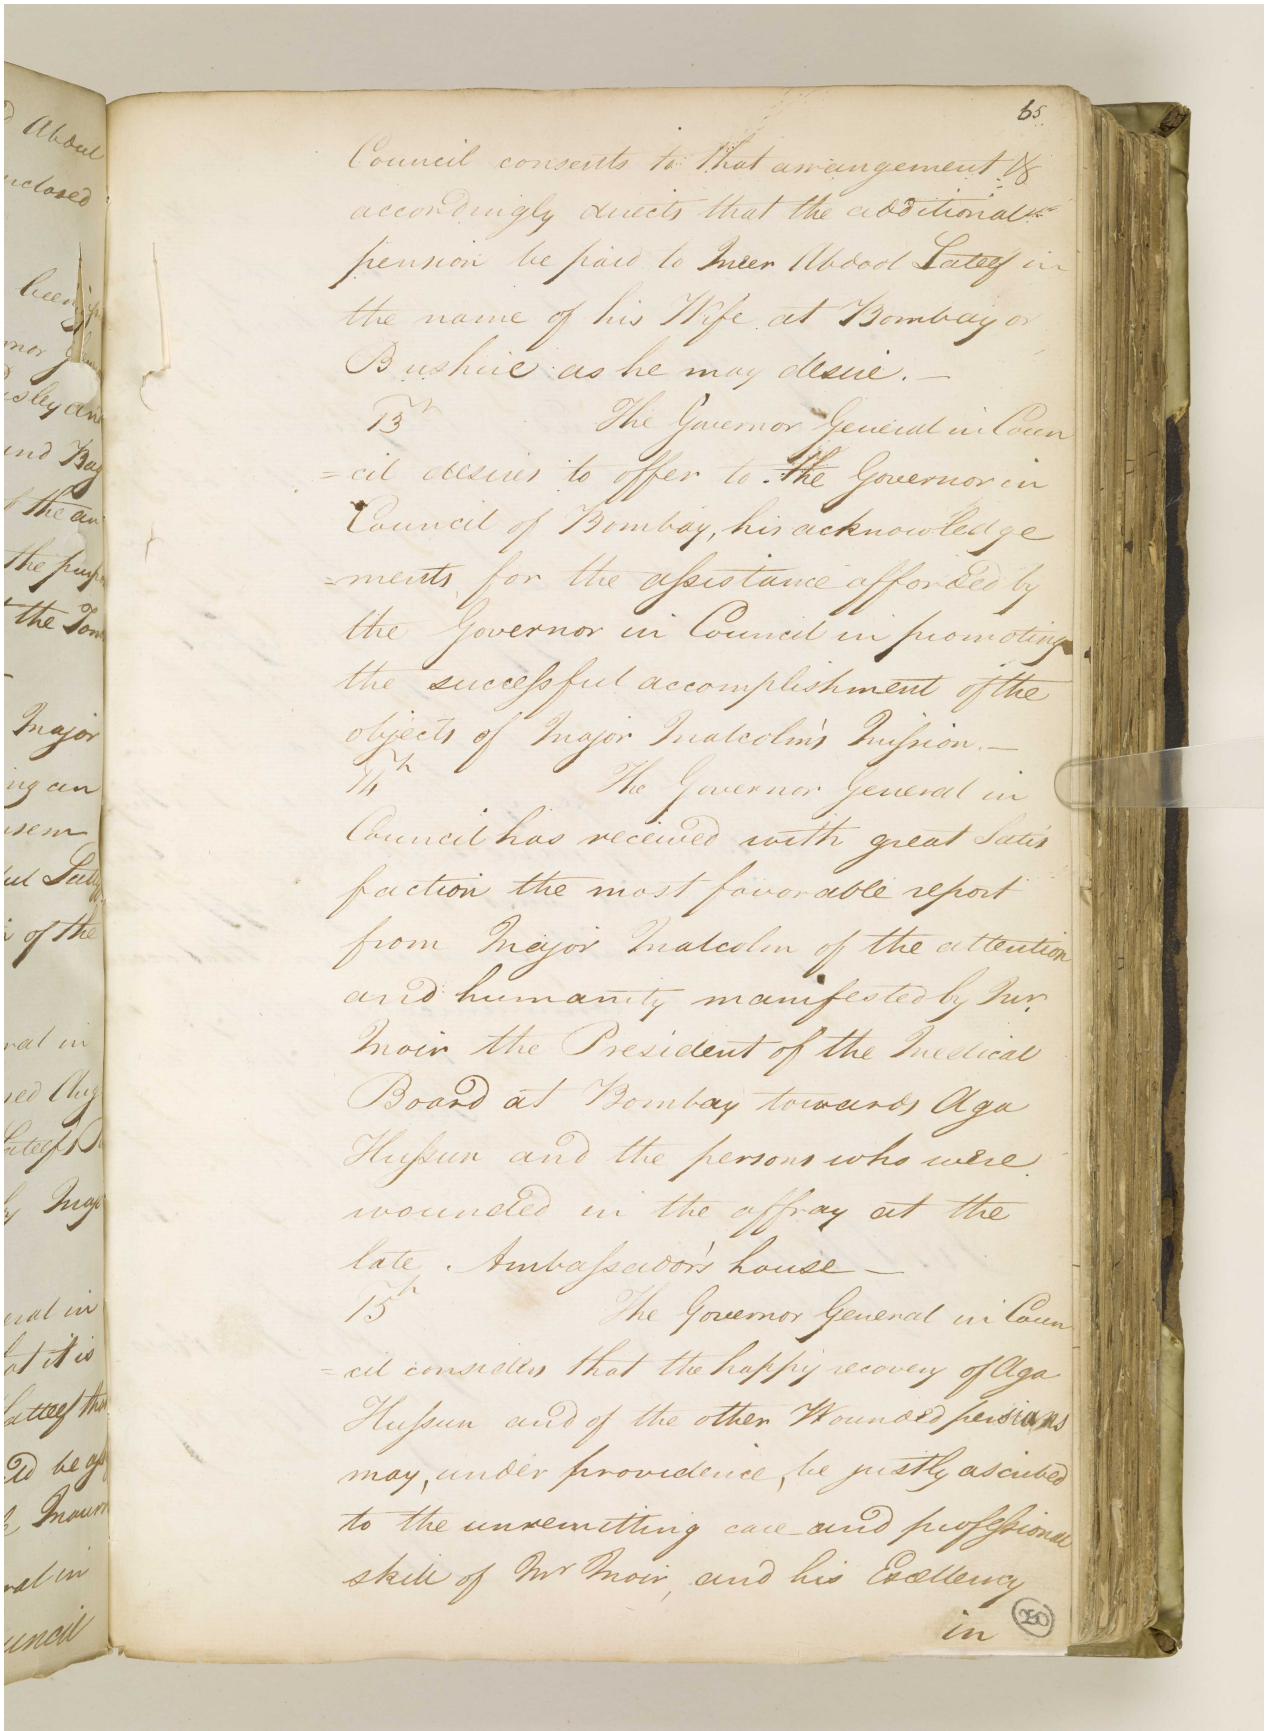 65
Council consents to that arrangement &
accordingly directs that the additional
pension be paid to Meer Abdool Lateef in
the name of his Wife at Bombay or
Bushire as he may desire. —
13th The Governor General in Coun
=cil desires to offer to the Governor in
Council of Bombay, his acknowledge
=ments for the assistance afforded by
the Governor in Council in promoting
the successful accomplishment of the
objects of Major Malcolm's Mission. —
14th The Governor General in
Council has received with great Satis
faction the most favorable report
from Major Malcolm of the attention
and humanity manifested by Mr.
Moir the President of the Medical
Board at Bombay towards Aga
Hussun and the persons who were
wounded in the affray at the
late Ambassador's house —
15th The Governor General in Coun
=cil considers that the happy recovery of Aga
Hussun and of the other Wounded persians
may, under providence, be justly ascribed
to the unremitting care and professional
skill of Mr Moir, and his Excellency
in
250
Abdul
nclosed
been
nor
sley and
and Bag
f the an
the purp
t the Tom
Major
ing an
of the
ral in
Lateef
by Maj
eral in
at it is
Latteef that
ed be
ral in
uncil